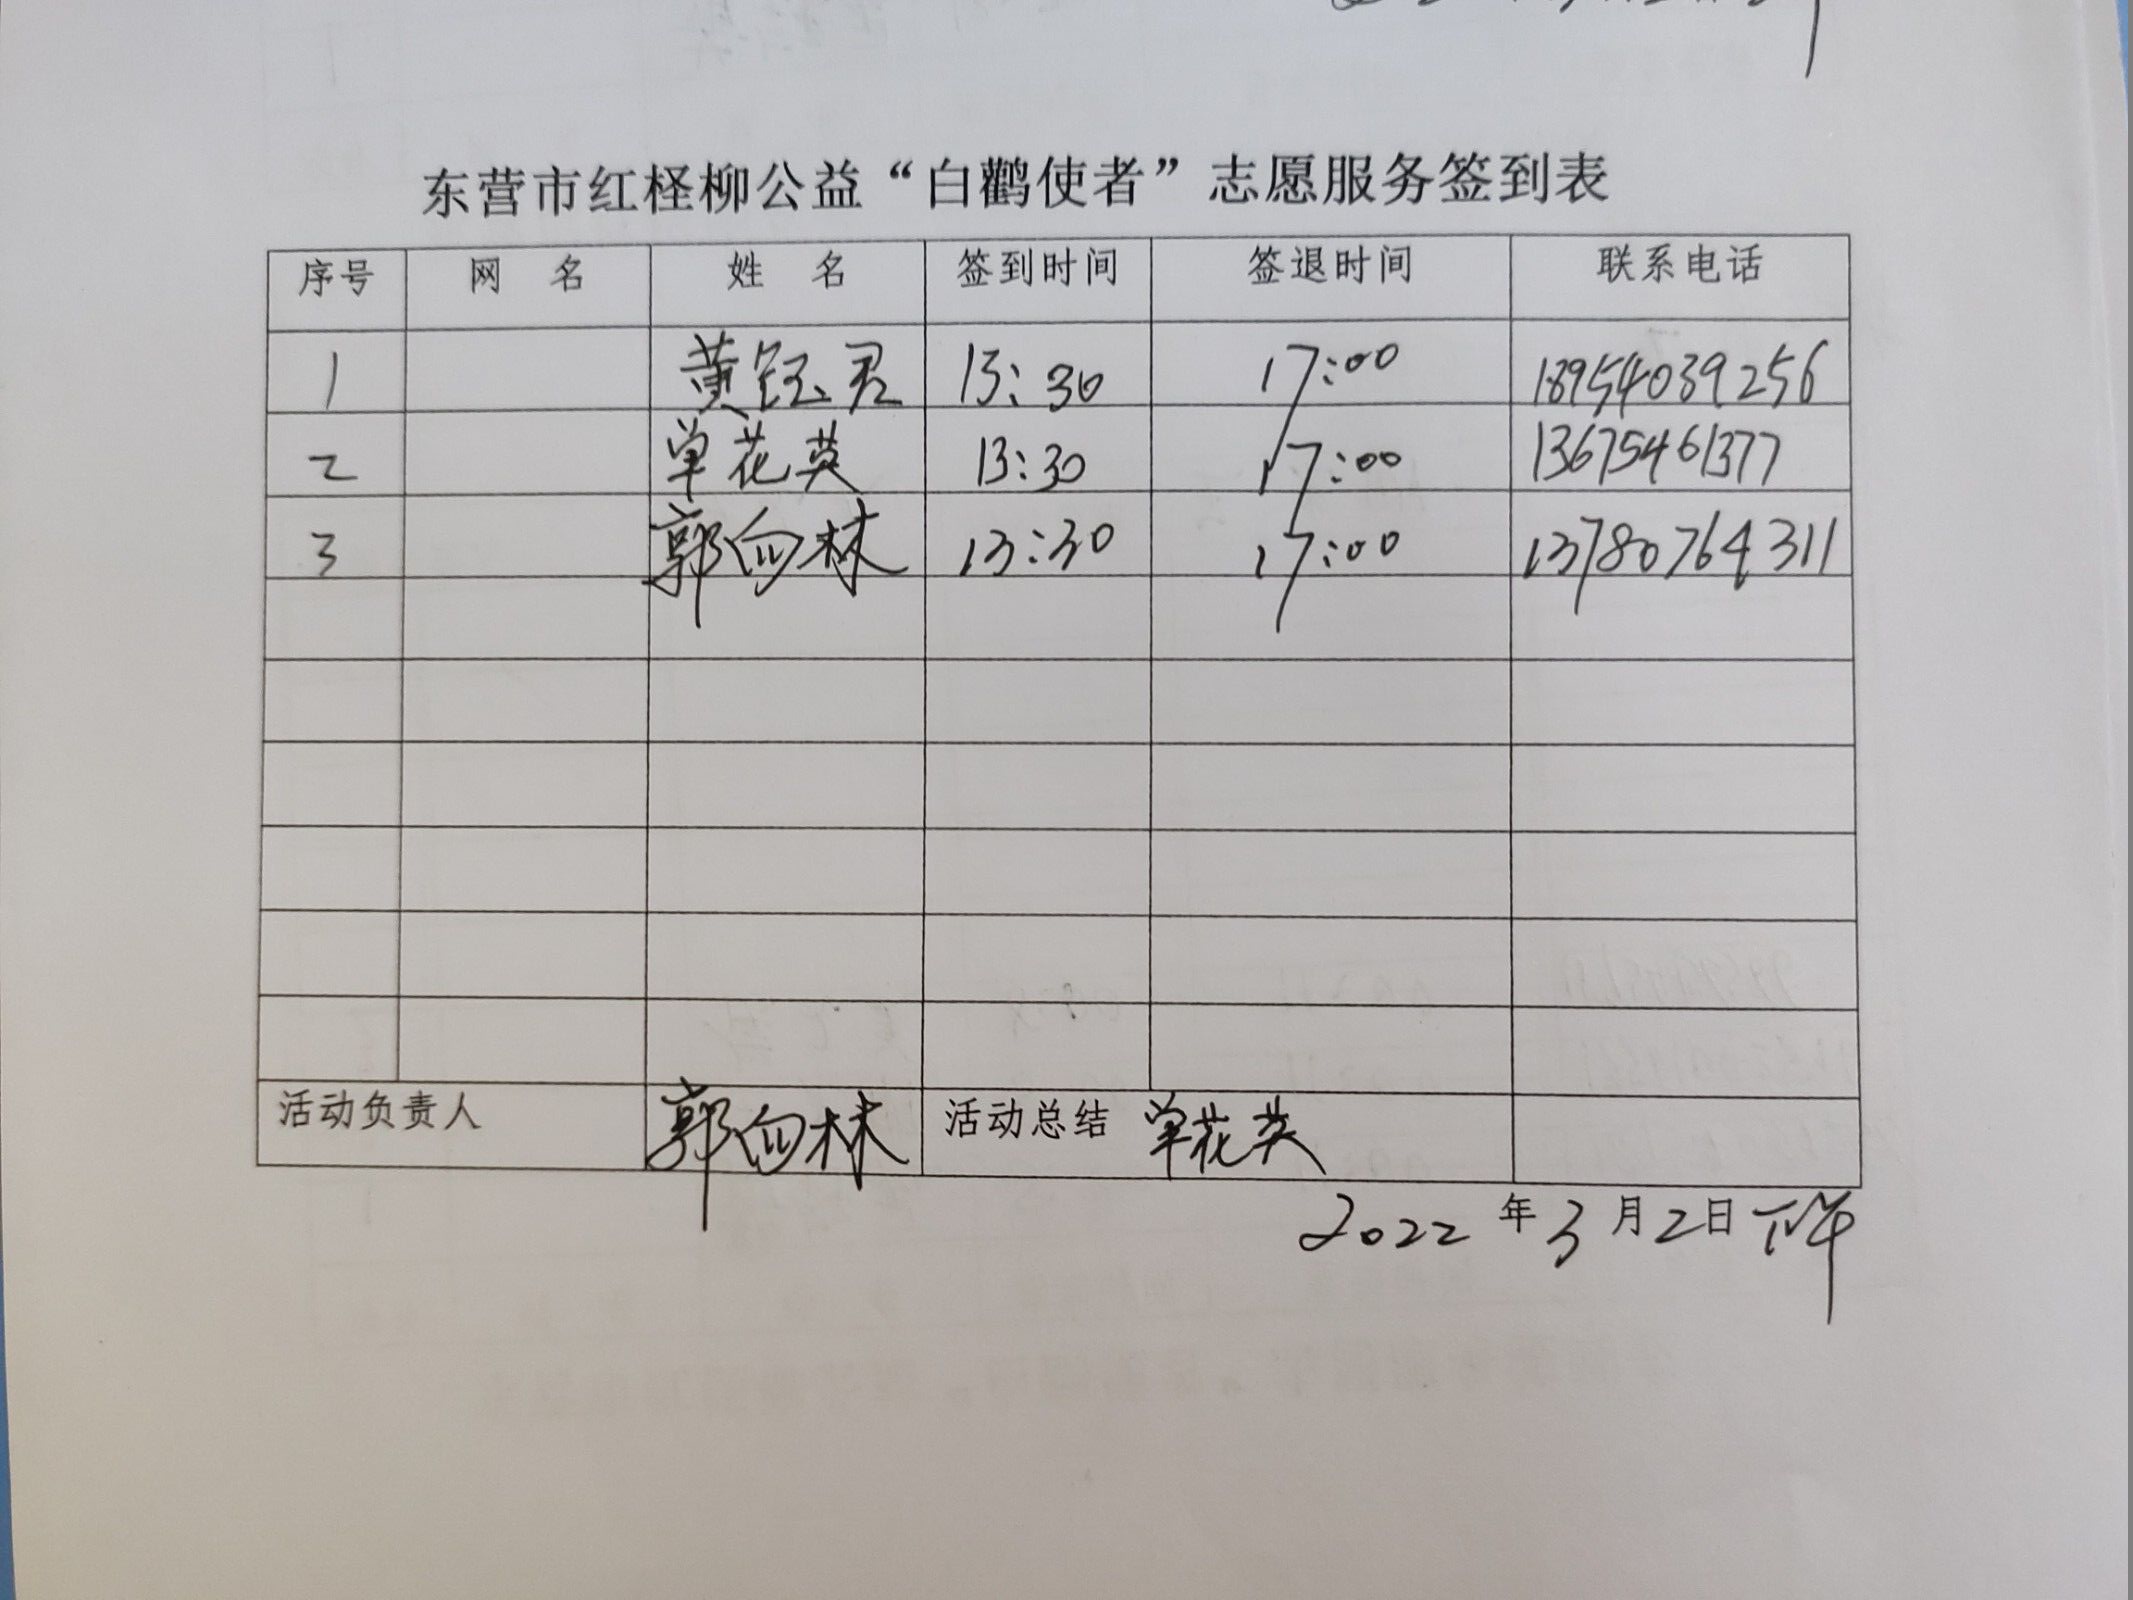 东营市红柽柳公益“白鹳使者”志愿服务签到表
序号 网 名 姓 名 签到时间 签退时间 联系电话
1 黄钰君 13:30 17:00 18954039256
2 单花英 13:30 17:00 13675461377
3 郭向林 13:30 17:00 13780764311
活动负责人 郭向林 活动总结 单花英
2022 年 3 月 2 日 下午